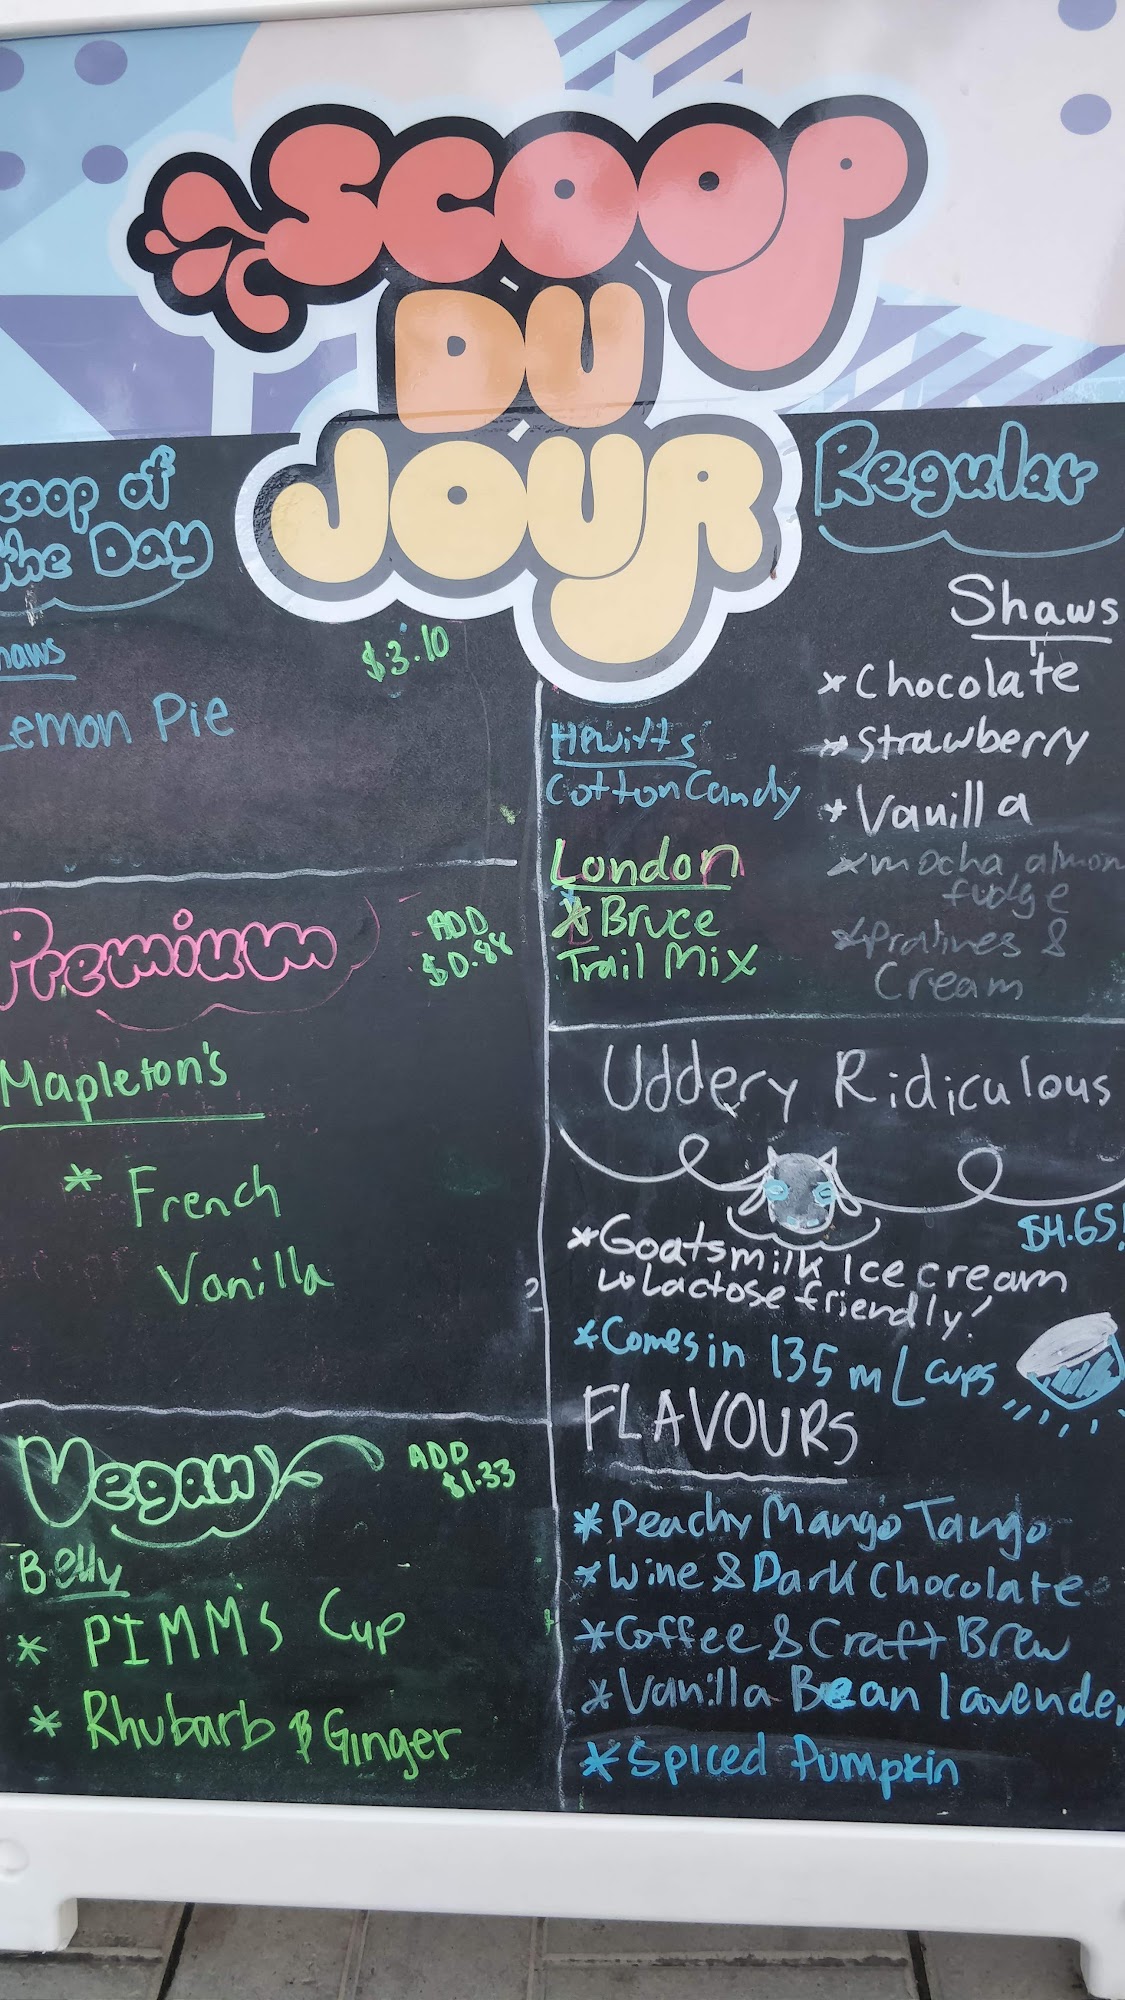 SCOOP
DU
JOUR
coop of
the Day
haws
$3.10
Lemon Pie
Premium
ADD
$0.88
Mapleton's
* French
Vanilla
Vegan
ADD
$1.33
Belly
* PIMM's Cup
* Rhubarb & Ginger
Regular
Shaws
* Chocolate
* Strawberry
* Vanilla
* mocha almon
fudge
* Pralines &
Cream
Hewitts
Cotton Candy
London
* Bruce
Trail Mix
Uddery Ridiculous
$4.65!
* Goatsmilk Ice cream
Lactose friendly!
* Comes in 135 mL cups
FLAVOURS
* Peachy Mango Tango
* Wine & Dark Chocolate
* Coffee & Craft Brew
* Vanilla Bean lavender
* Spiced Pumpkin